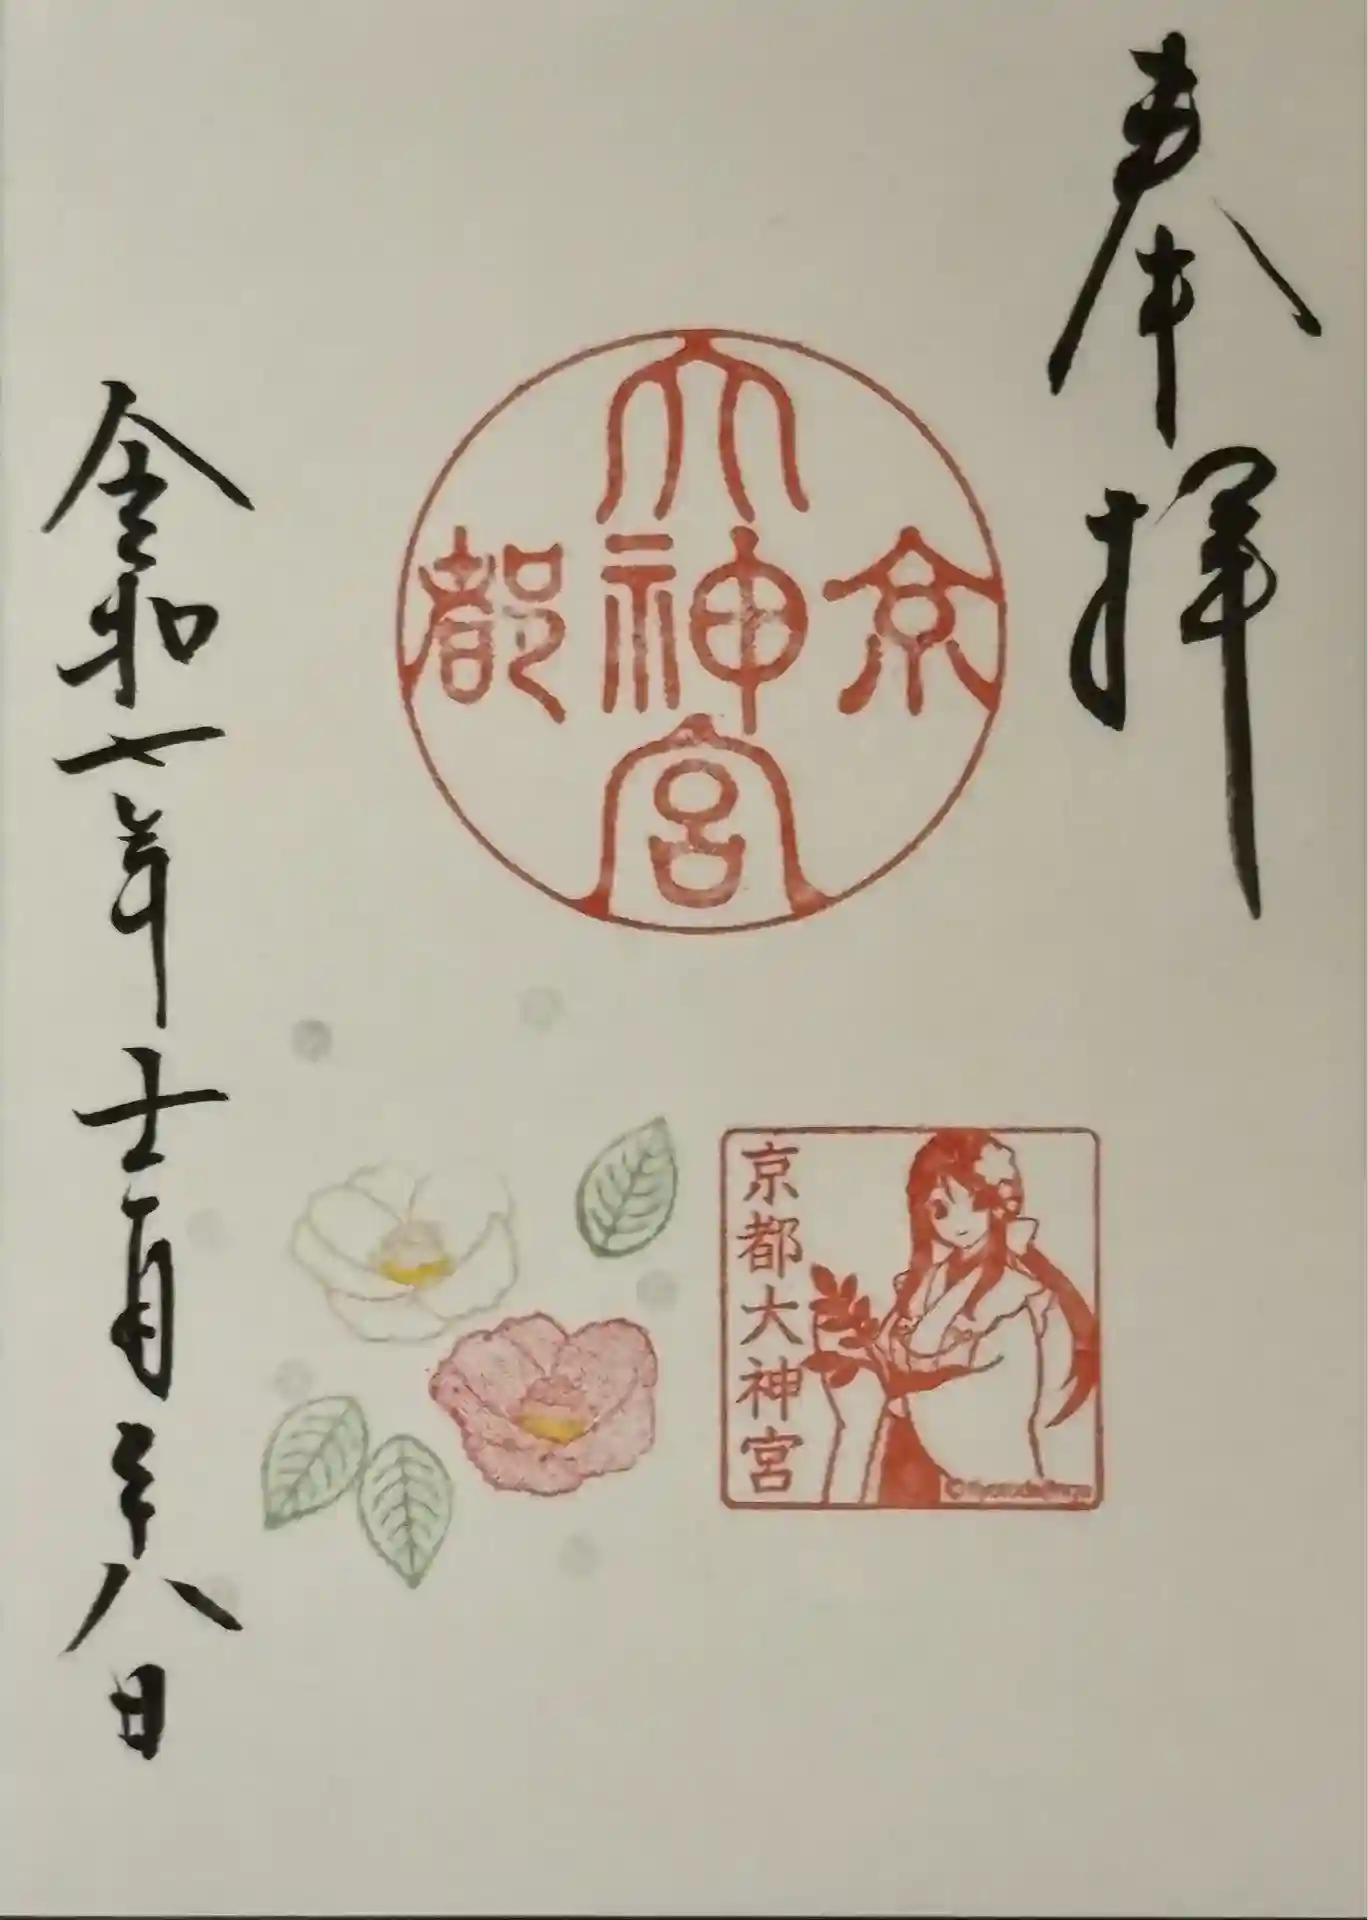 奉拝
京都
大神宮
京都大神宮
令和七年十二月二十八日